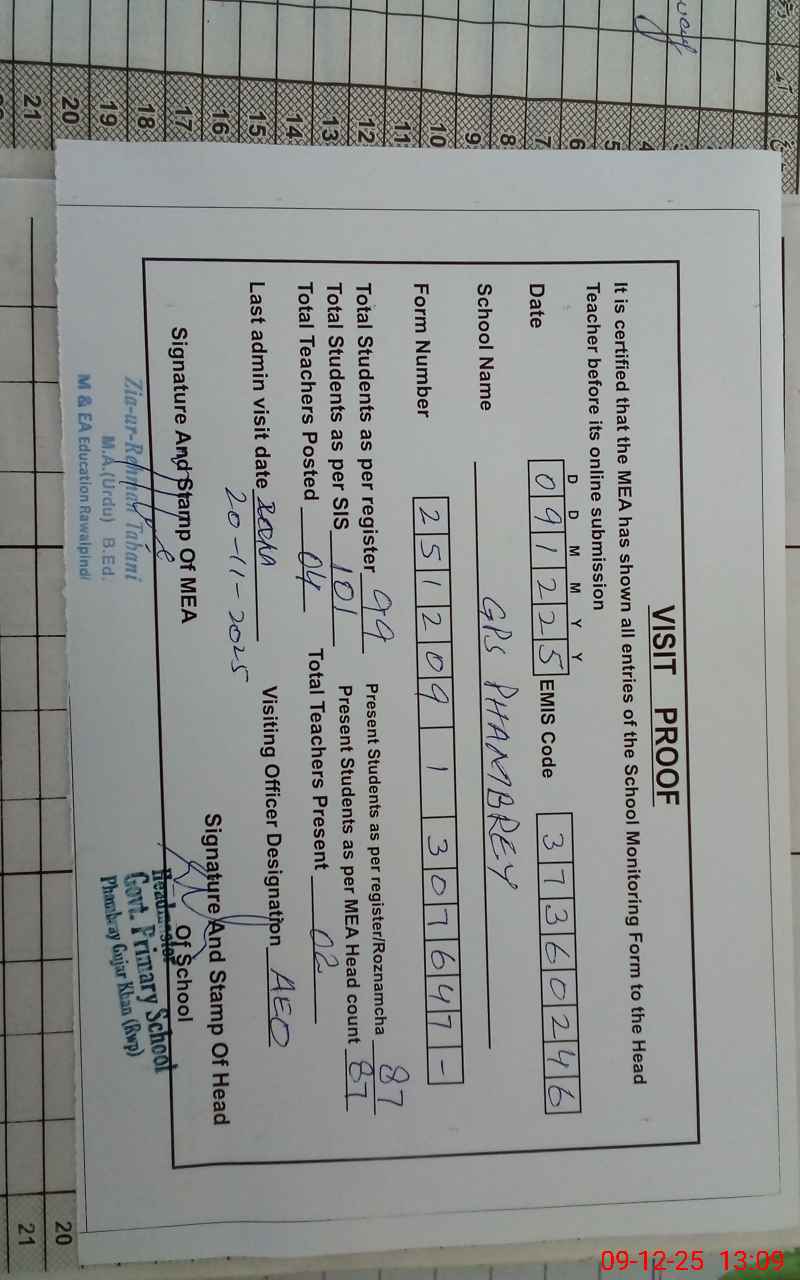 VISIT PROOF
It is certified that the MEA has shown all entries of the School Monitoring Form to the Head
Teacher before its online submission
D D M M Y Y
Date 0 9 1 2 2 5 EMIS Code 3 7 3 6 0 2 4 6
School Name GPS PHAMBREY
Form Number 2 5 1 2 0 9 1 3 0 7 6 4 7 -
Total Students as per register 99 Present Students as per register/Roznamcha 87
Total Students as per SIS 101 Present Students as per MEA Head count 87
Total Teachers Posted 04 Total Teachers Present 02
Last admin visit date Visiting Officer Designation AEO
20-11-2025
Signature And Stamp Of MEA
Signature And Stamp Of Head
Of School
Zia-ur-Rehman Tabani
M.A.(Urdu) B.Ed.
M & EA Education Rawalpindi
Headmaster
Govt. Primary School
Phambray Gujar Khan (Rwp)
4
5
6
7
8
9
10
11
12
13
14
15
16
17
18
19
20
21
20
21
09-12-25 13:09